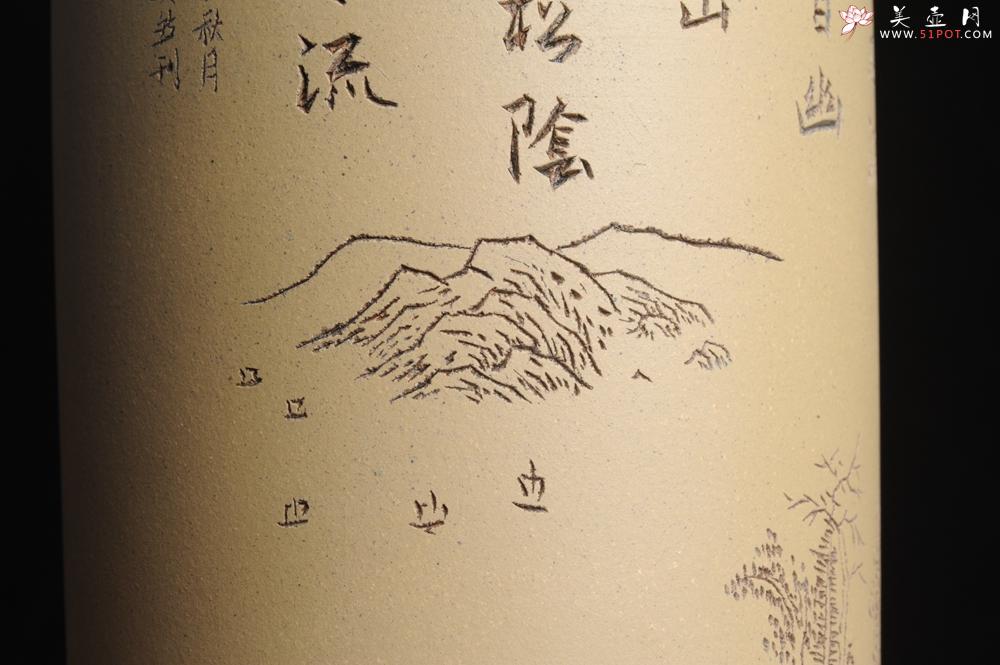 幽
山
松陰
流
秋月
刊
美壶网
WWW.51POT.COM